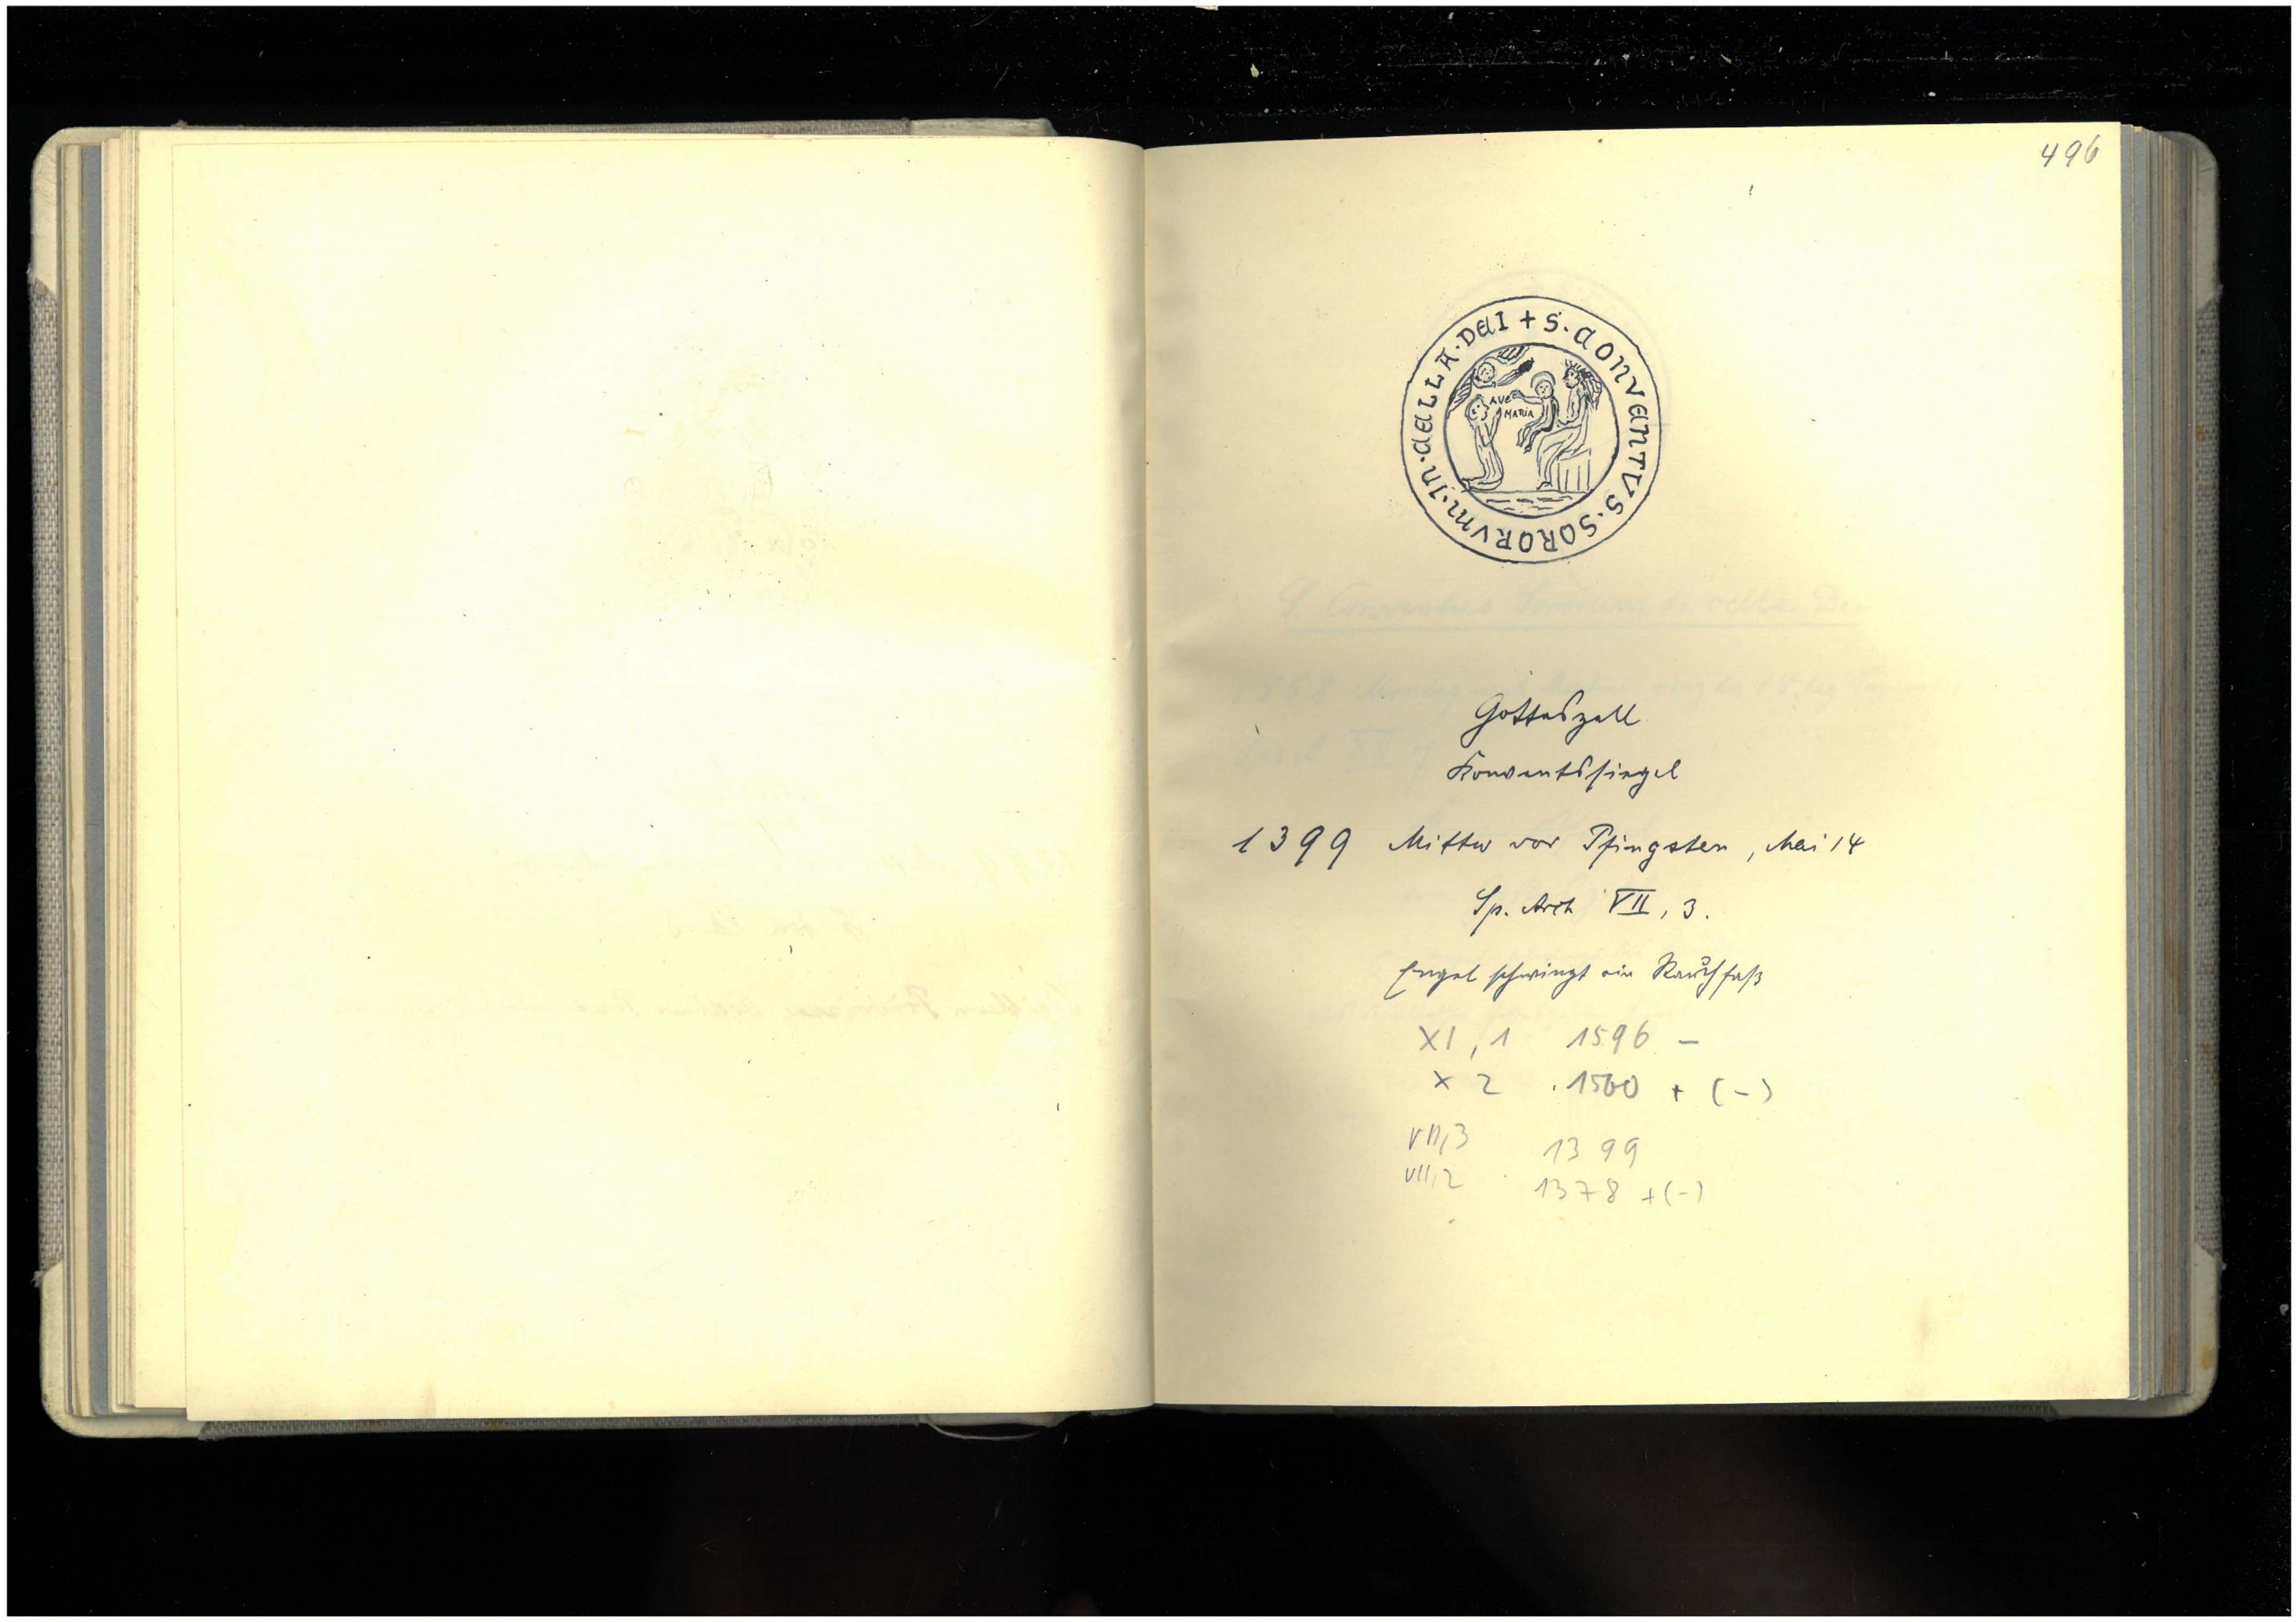 496
+ S. CONVENTVS. SORORVM. IN. CELLA. DEI
AVE
MARIA
Gotteszell
Konventssiegel
1399 Mittw vor Pfingsten, Mai 14
Sp. Arch VII, 3.
Engel schwingt ein Rauchfaß
XI, 1 1596 –
X 2 . 1560 + (–)
VII,3 1399
VII,2 1378 + (–)
S Conventus Sororum de cella Dei